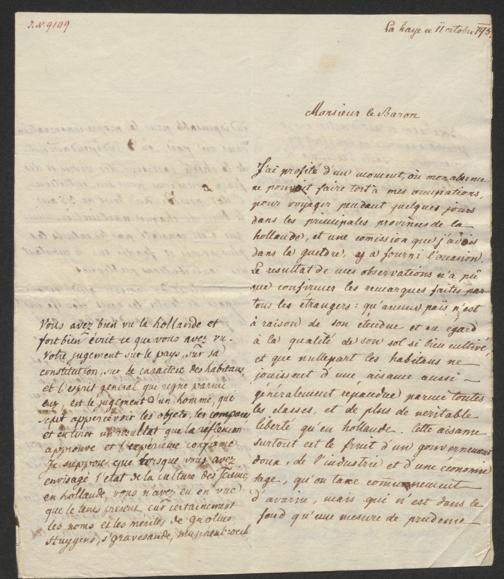 J. N. 9109
La haye ce 11 octobre 
Monsieur le Baron
J'ai profité d'un moment, où mon absence
ne pouvoit faire tort à mes occupations,
pour voyager pendant quelques jours
dans les principales provinces de la
hollande, et une comission que j'avois
dans la gueldre, en a fourni l'occasion.
Le resultat de mes observations n'a pû
que confirmer les remarques faites par
tous les étrangers: qu'aucun païs n'est
à raison de son étendue et eu egard
à la qualité de son sol si bien cultivé,
et que nullepart les habitans ne
jouissent d'une aisance aussi
généralement repandue parmi toutes
les classes, et de plus de veritable
liberté qu'en hollande. Cette aisance
surtout est le fruit d'un gouvernement
doux, de l'industrie et d'une oeconomie
sage, qu'on taxe communement
d'avarice, mais qui n'est dans le
fond qu'une mesure de prudence
Vous avez bien vu la hollande et
fort bien écrit ce que vous avez vu.
Votre jugement sur le pays, sur sa
constitution, sur le caractère des habitans
et l'esprit general qui regne parmi
eux, est le jugement d'un homme, qui
sçait appercevoir les objets, les comparer
et en tirer un resultat que la reflexion
approuve et l'experience confirme
Je suppose que lorsque vous avez
envisagé l'état de la culture des
en hollande, vous n'avez eu en vue
que le tems présent, car certainement
les noms et les mérites de Grotius
Huygens, s'Gravesande, Musschenbroek